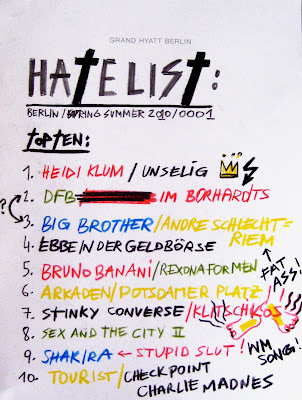 GRAND HYATT BERLIN
HATELIST:
BERLIN/SPRING SUMMER 2010/0001
TOPTEN:
1. HEIDI KLUM / UNSELIG
? 2. DFB= IM BORHARDTS
3. BIG BROTHER/ANDRE SCHLECHT=
RIEM
4. EBBE IN DER GELDBÖRSE
FAT ASS!
5. BRUNO BANANI/REXONA FOR MEN
6. ARKADEN/POTSDAMER PLATZ
7. STINKY CONVERSE/KLITSCHKOS
8. SEX AND THE CITY II
9. SHAKIRA ← STUPID SLUT! WM SONG!
10. TOURIST/CHECKPOINT
CHARLIE MADNES